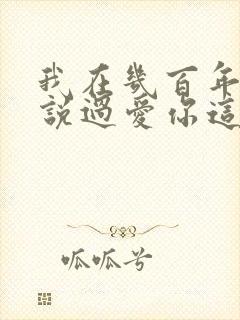 我在幾百年
說過愛你這
呱呱兮